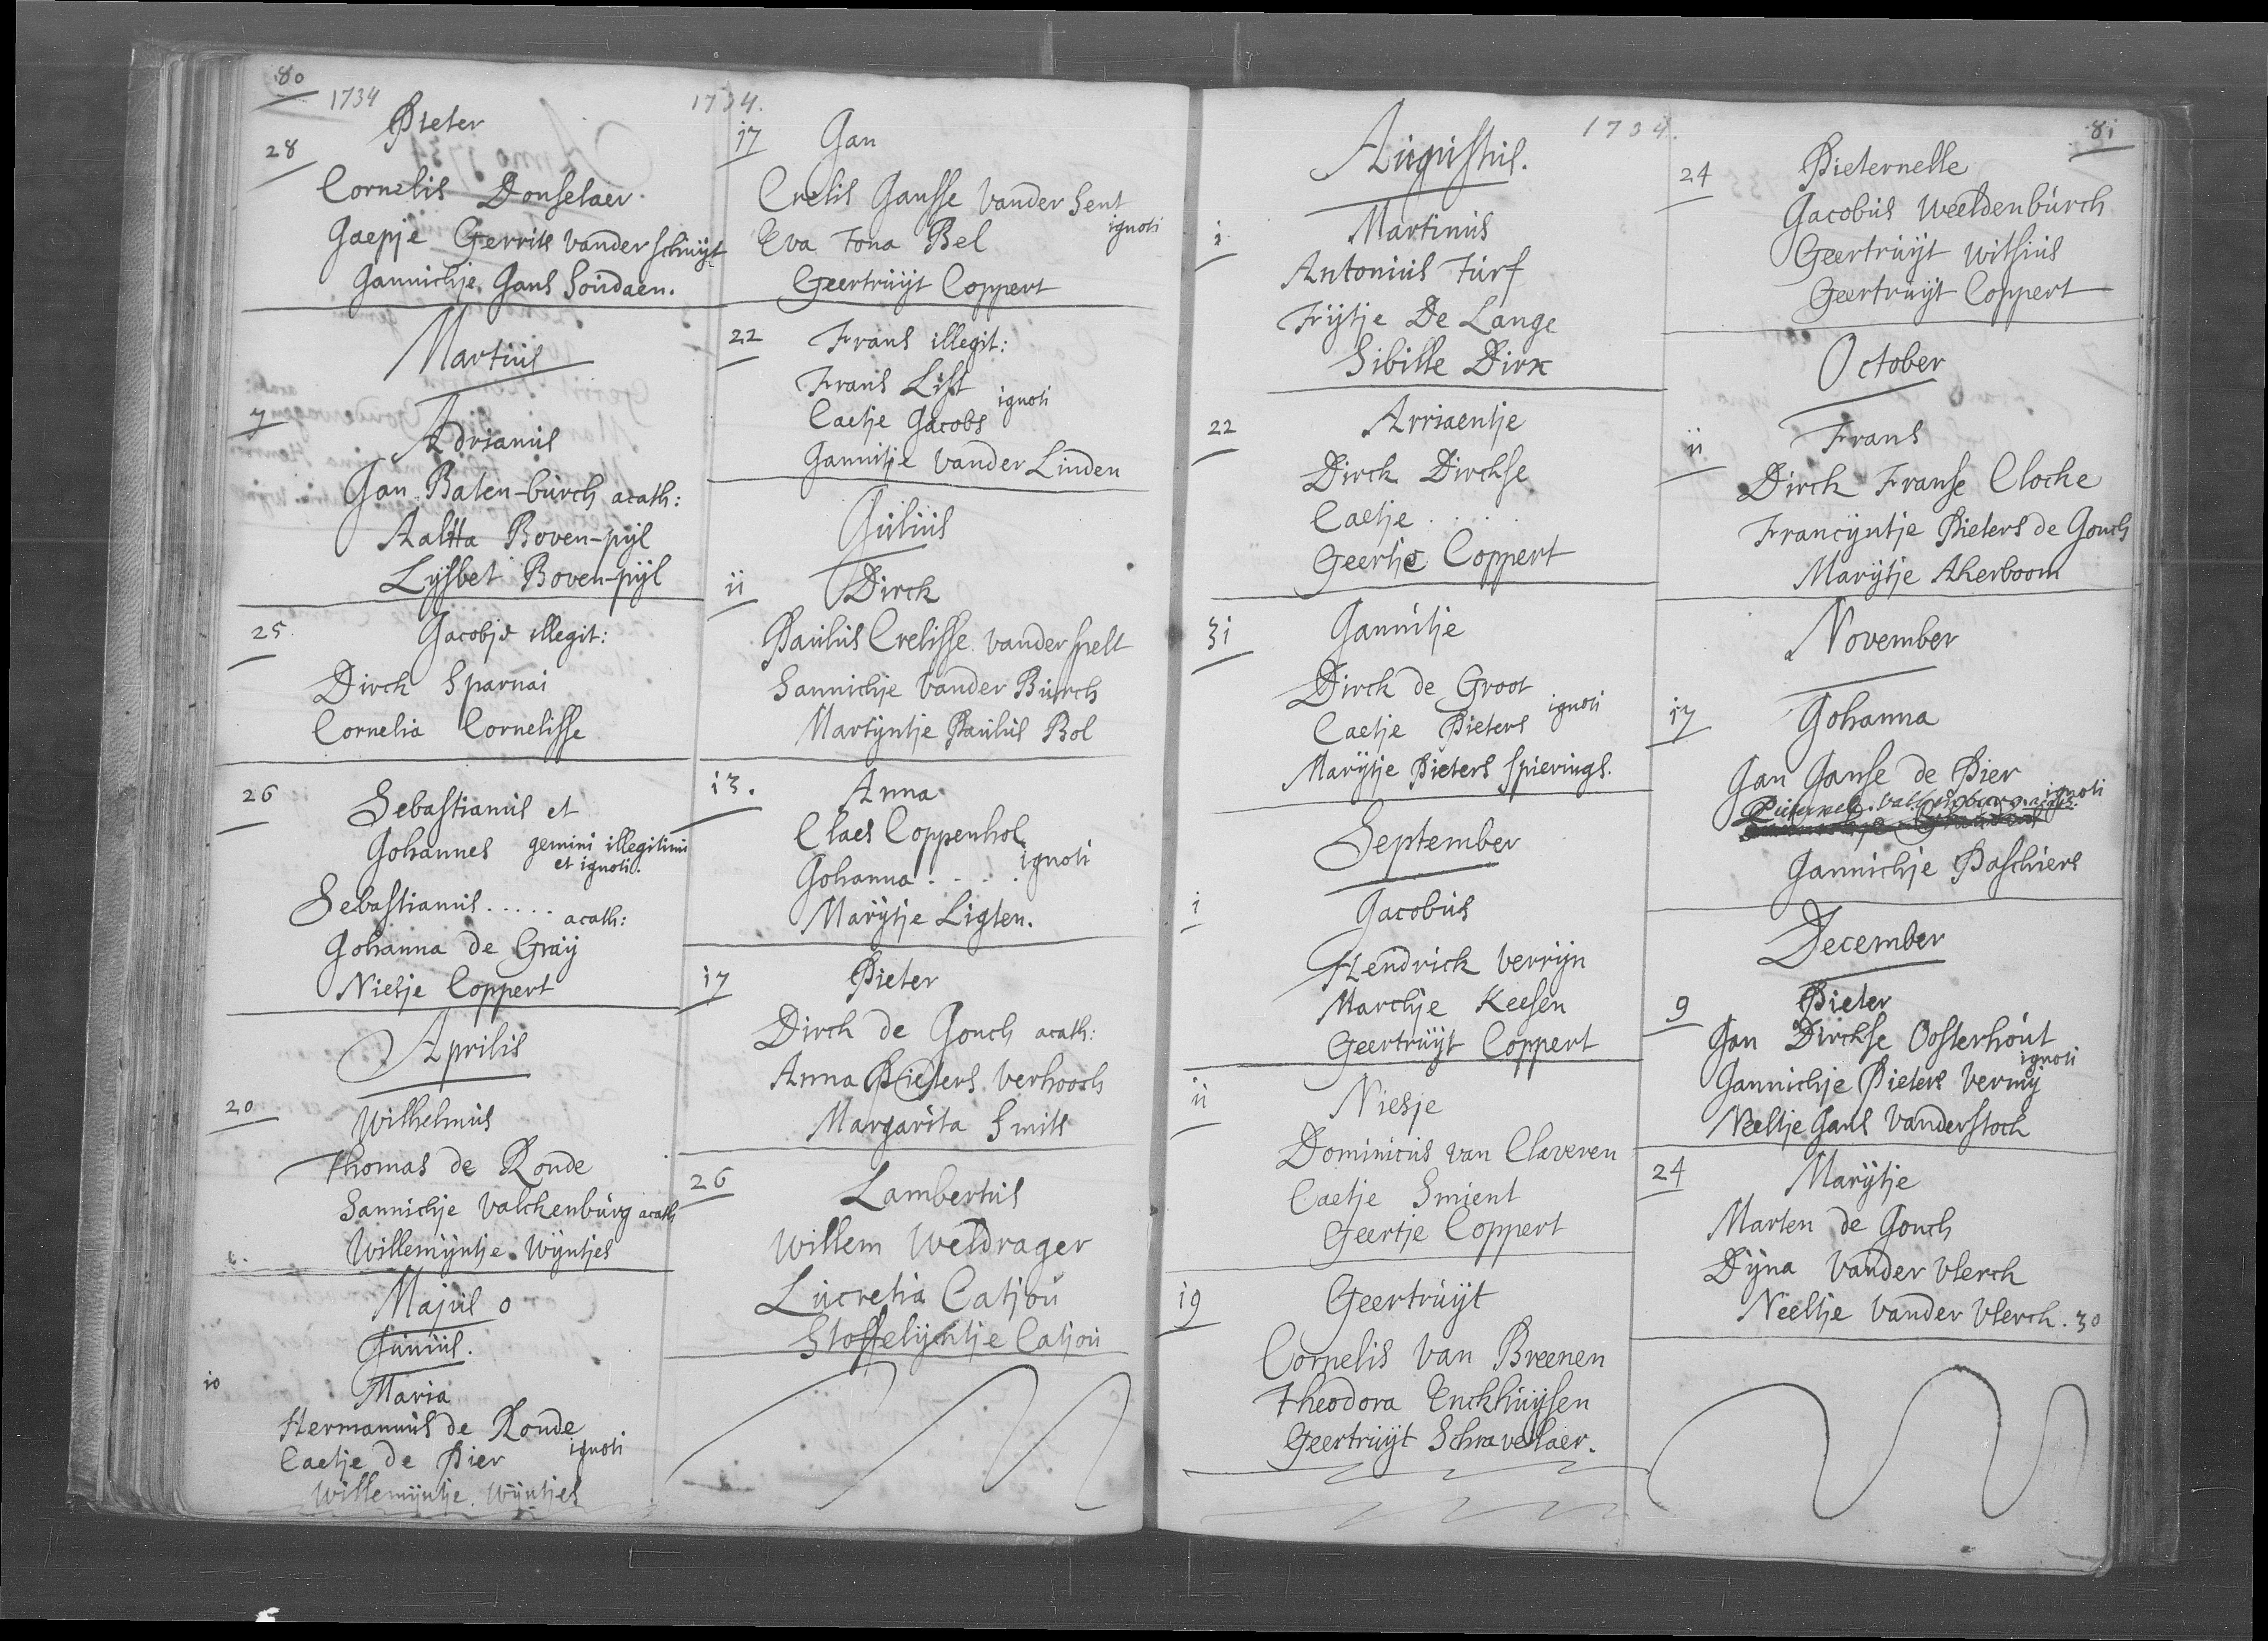 80
1734
Pieter
28
Cornelis Donselaer
Jaepje Gerrits vander schuijt
Jannichje Jans Soudaen.
Martius
7
Adrianus
Jan Baten-burch acath:
Aaltta Boven-pijl
Lijsbet Boven-pijl
25
Jacobje illegit:
Dirck Sparnai
Cornelia Cornelisse
26
Sebastianus et
Johannes gemini illegitimi
et ignoti.
Sebastianus.....
acath:
Johanna de Graij
Niesje Coppert
Aprilis
20
Wilhelmus
Thomas de Ronde
Sannichje valckenburg acath
Willemijntje Wijntjes
Majus 0
Junius.
10
Maria
Hermannus de Ronde
Caetje de Pier ignoti
Willemijntje Wijntjes
1734.
17
Jan
Crelis Jansse vander Sent
Eva Tona Bel ignoti
Geertruijt Coppert
22
Frans illegit:
Frans List
Caetje Jacobs ignoti
Jannitje vander Linden
Julius
11
Dirck
Paulus Crelisse vander spelt
Sannichje vander Burch
Martijntje Paulus Bol
13.
Anna
Claes Coppenhol
Johanna..... ignoti
Marijtje Ligten.
17
Pieter
Dirck de Gouch acath:
Anna Pieters verhooch
Margarita Smits
26
Lambertus
Willem Weldrager
Lucretia Catjou
Stoffelijntje Catjou
1734.
Augustus.
1
Martinus
Antonius Turf
Trijtje De Lange
Sibille Dirx
22
Arriaentje
Dirck Dirckse
Caetje....
Geertje Coppert
31
Jannitje
Dirck de Groot
Caetje Pieters ignoti
Marijtje Pieters spierings.
September
1
Jacobus
Hendrick verrijn
Marchje Keesen
Geertruijt Coppert
11
Niesje
Dominicus van Claveren
Caetje Smient
Geertje Coppert
19
Geertruijt
Cornelis van Breenen
Theodora Enckhuijsen
Geertruijt Schravelaer.
81
24
Pieternelle
Jacobus Weeldenburch
Geertruijt Witsius
Geertruijt Coppert
October
11
Frans
Dirck Franse Clocke
Francijntje Pieters de Gouch
Marijtje Akerboom
November
17
Johanna
Jan Janse de Pier
ignoti
Jannichje Paschiers
December
9
Pieter
Jan Dirckse Oosterhout
ignoti
Jannichje Pieters vermij
Neeltje Jans vanderstoch
24
Marijtje
Marten de Gouch
Dijna vander vlerck
Neeltje vander vlerck. 30